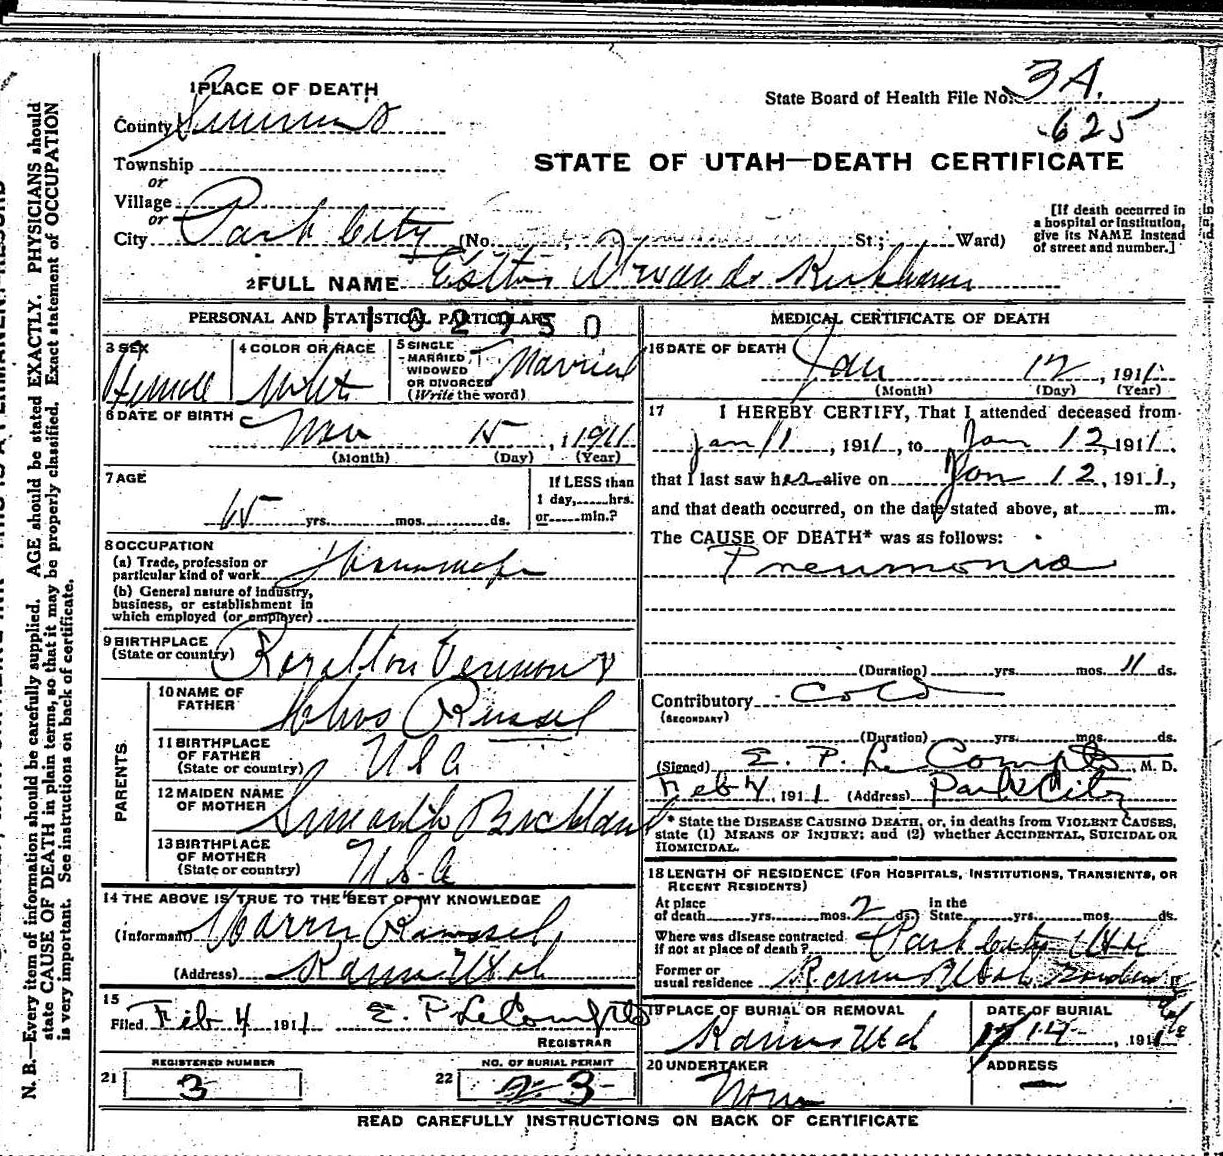 1 PLACE OF DEATH
County Summit
Township
or
Village
or
City Park City (No. St.; Ward)
State Board of Health File No. 3A.
625
STATE OF UTAH—DEATH CERTIFICATE
[If death occurred in
a hospital or institution,
give its NAME instead
of street and number.]
2 FULL NAME Kirkham
PERSONAL AND STATISTICAL PARTICULARS
1102950
3 SEX
Female
4 COLOR OR RACE
White
5 SINGLE
MARRIED
WIDOWED
OR DIVORCED
(Write the word)
Married
6 DATE OF BIRTH
Nov 15, 1911
(Month) (Day) (Year)
7 AGE
65 yrs. mos. ds.
If LESS than
1 day, hrs.
or min.?
8 OCCUPATION
(a) Trade, profession or
particular kind of work
(b) General nature of industry,
business, or establishment in
which employed (or employer)
9 BIRTHPLACE
(State or country)
Royalton Vermont
PARENTS
10 NAME OF
FATHER
Russel
11 BIRTHPLACE
OF FATHER
(State or country)
U S A
12 MAIDEN NAME
OF MOTHER
13 BIRTHPLACE
OF MOTHER
(State or country)
U.S.A
14 THE ABOVE IS TRUE TO THE BEST OF MY KNOWLEDGE
(Informant)
(Address) Kamas Utah
15
Filed Feb 4 1911 E. P. LeCompte
REGISTRAR
REGISTERED NUMBER
21 3
NO. OF BURIAL PERMIT
22 23
MEDICAL CERTIFICATE OF DEATH
16 DATE OF DEATH
Jan 12, 1911
(Month) (Day) (Year)
17 I HEREBY CERTIFY, That I attended deceased from
Jan 11, 1911, to Jan 12, 1911.
that I last saw her alive on Jan 12, 1911,
and that death occurred, on the date stated above, at m.
The CAUSE OF DEATH* was as follows:
Pneumonia
(Duration) yrs. mos. 11 ds.
Contributory
(SECONDARY)
(Duration) yrs. mos. ds.
(Signed) E. P. Le Compte M. D.
Feb 4, 1911 (Address) Park City
* State the DISEASE CAUSING DEATH, or, in deaths from VIOLENT CAUSES,
state (1) MEANS OF INJURY; and (2) whether ACCIDENTAL, SUICIDAL OR
HOMICIDAL.
18 LENGTH OF RESIDENCE (FOR HOSPITALS, INSTITUTIONS, TRANSIENTS, OR
RECENT RESIDENTS)
At place
of death yrs. mos. 2 ds. In the
State yrs. mos. ds.
Where was disease contracted
if not at place of death? Park City Utah
Former or
usual residence Kamas Utah
19 PLACE OF BURIAL OR REMOVAL
Kamas Utah
DATE OF BURIAL
1911
20 UNDERTAKER
None
ADDRESS
READ CAREFULLY INSTRUCTIONS ON BACK OF CERTIFICATE
N. B.—Every item of information should be carefully supplied. AGE should be stated EXACTLY. PHYSICIANS should
state CAUSE OF DEATH in plain terms, so that it may be properly classified. Exact statement of OCCUPATION
is very important. See instructions on back of certificate.